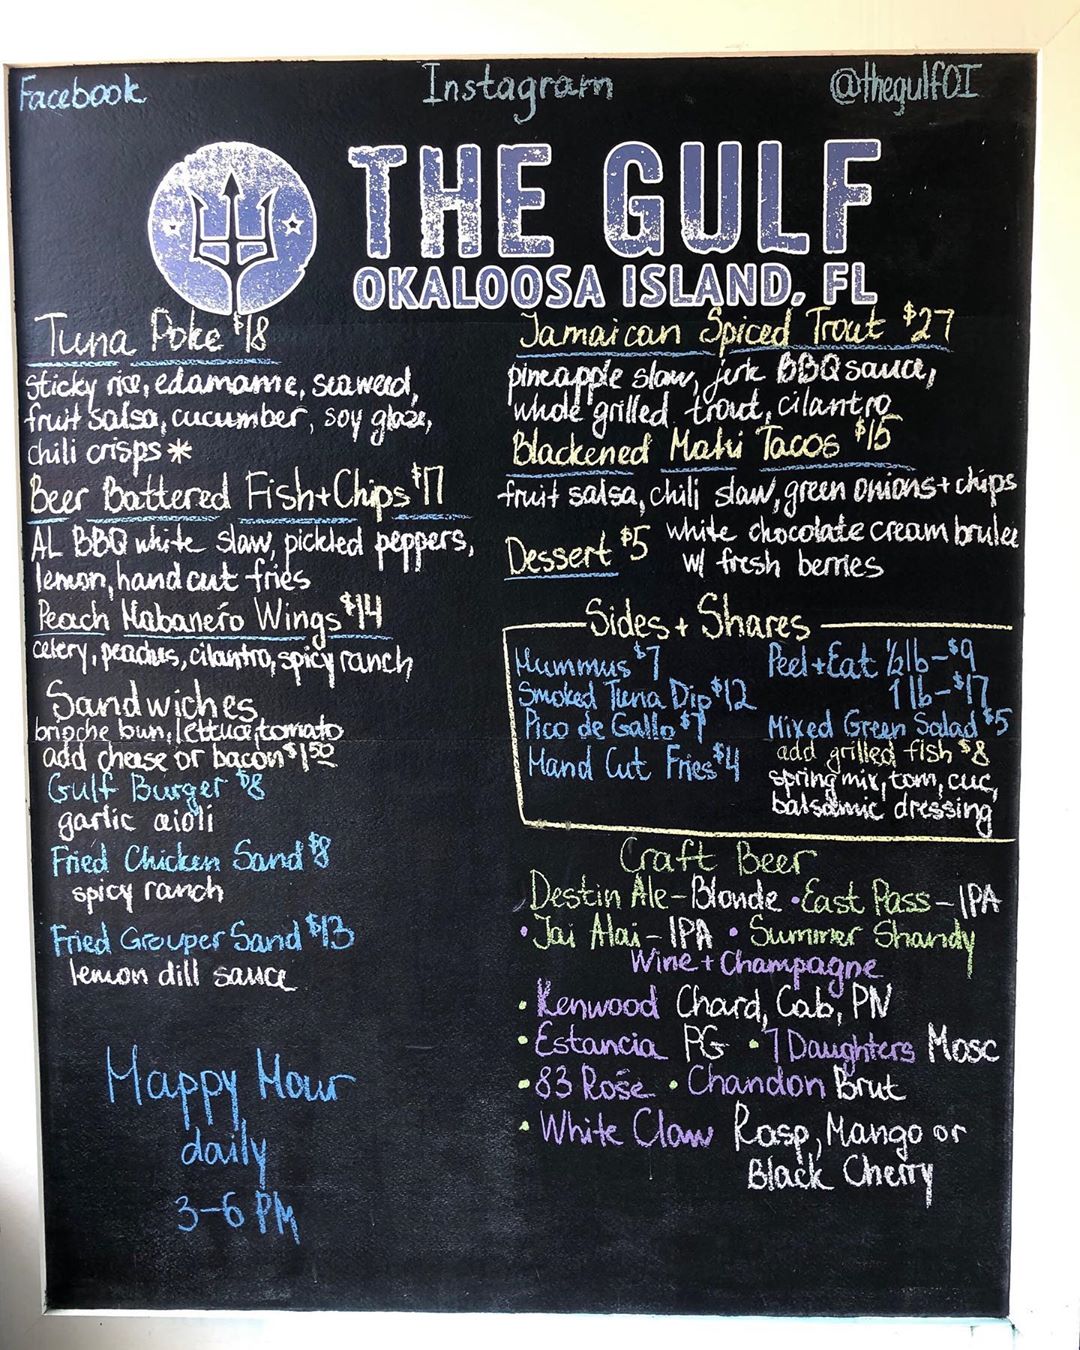 Facebook Instagram @thegulfOI
THE GULF
OKALOOSA ISLAND, FL
Tuna Poke $18
sticky rice, edamame, seaweed,
fruit salsa, cucumber, soy glaze,
chili crisps *
Beer Battered Fish + Chips $17
AL BBQ white slaw, pickled peppers,
lemon, hand cut fries
Peach Habanero Wings $14
celery, peaches, cilantro, spicy ranch
Sandwiches
brioche bun, lettuce, tomato
add cheese or bacon $1.50
Gulf Burger $8
garlic aioli
Fried Chicken Sand $8
spicy ranch
Fried Grouper Sand $13
lemon dill sauce
Happy Hour
daily
3-6 PM
Jamaican Spiced Trout $27
pineapple slaw, jerk BBQ sauce,
whole grilled trout, cilantro
Blackened Mahi Tacos $15
fruit salsa, chili slaw, green onions + chips
Dessert $5 white chocolate cream brulee
w/ fresh berries
Sides + Shares
Hummus $7
Smoked Tuna Dip $12
Pico de Gallo $7
Hand Cut Fries $4
Peel + Eat 1/2 lb - $9
1 lb - $17
Mixed Green Salad $5
add grilled fish $8
spring mix, tom, cuc,
balsamic dressing
Craft Beer
Destin Ale - Blonde • East Pass - IPA
• Jai Alai - IPA • Summer Shandy
Wine + Champagne
• Kenwood Chard, Cab, PN
• Estancia PG • 7 Daughters Mosc
• 83 Rosé • Chandon Brut
• White Claw Rasp, Mango or
Black Cherry